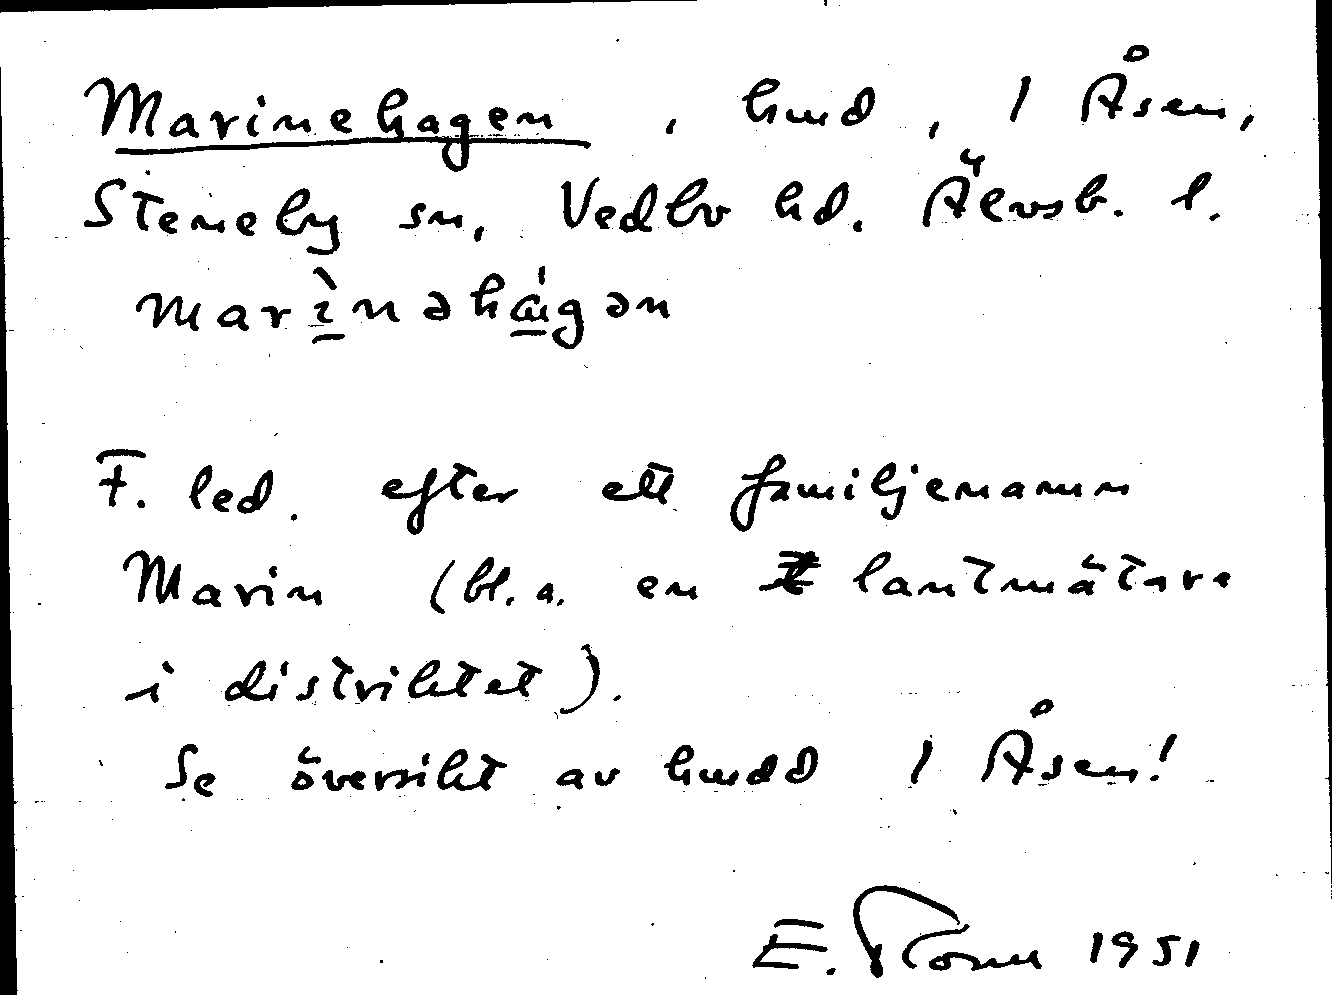 Marinehagen, hmd, 1 Åsen,
Steneby sn, Vedbo hd. Älvsb. l.
marìnəhágən
F. led. efter ett familjenamn
Marin (bl. a. en lantmätare
i distriktet).
Se översikt av hmdd 1 Åsen!
E. 1951